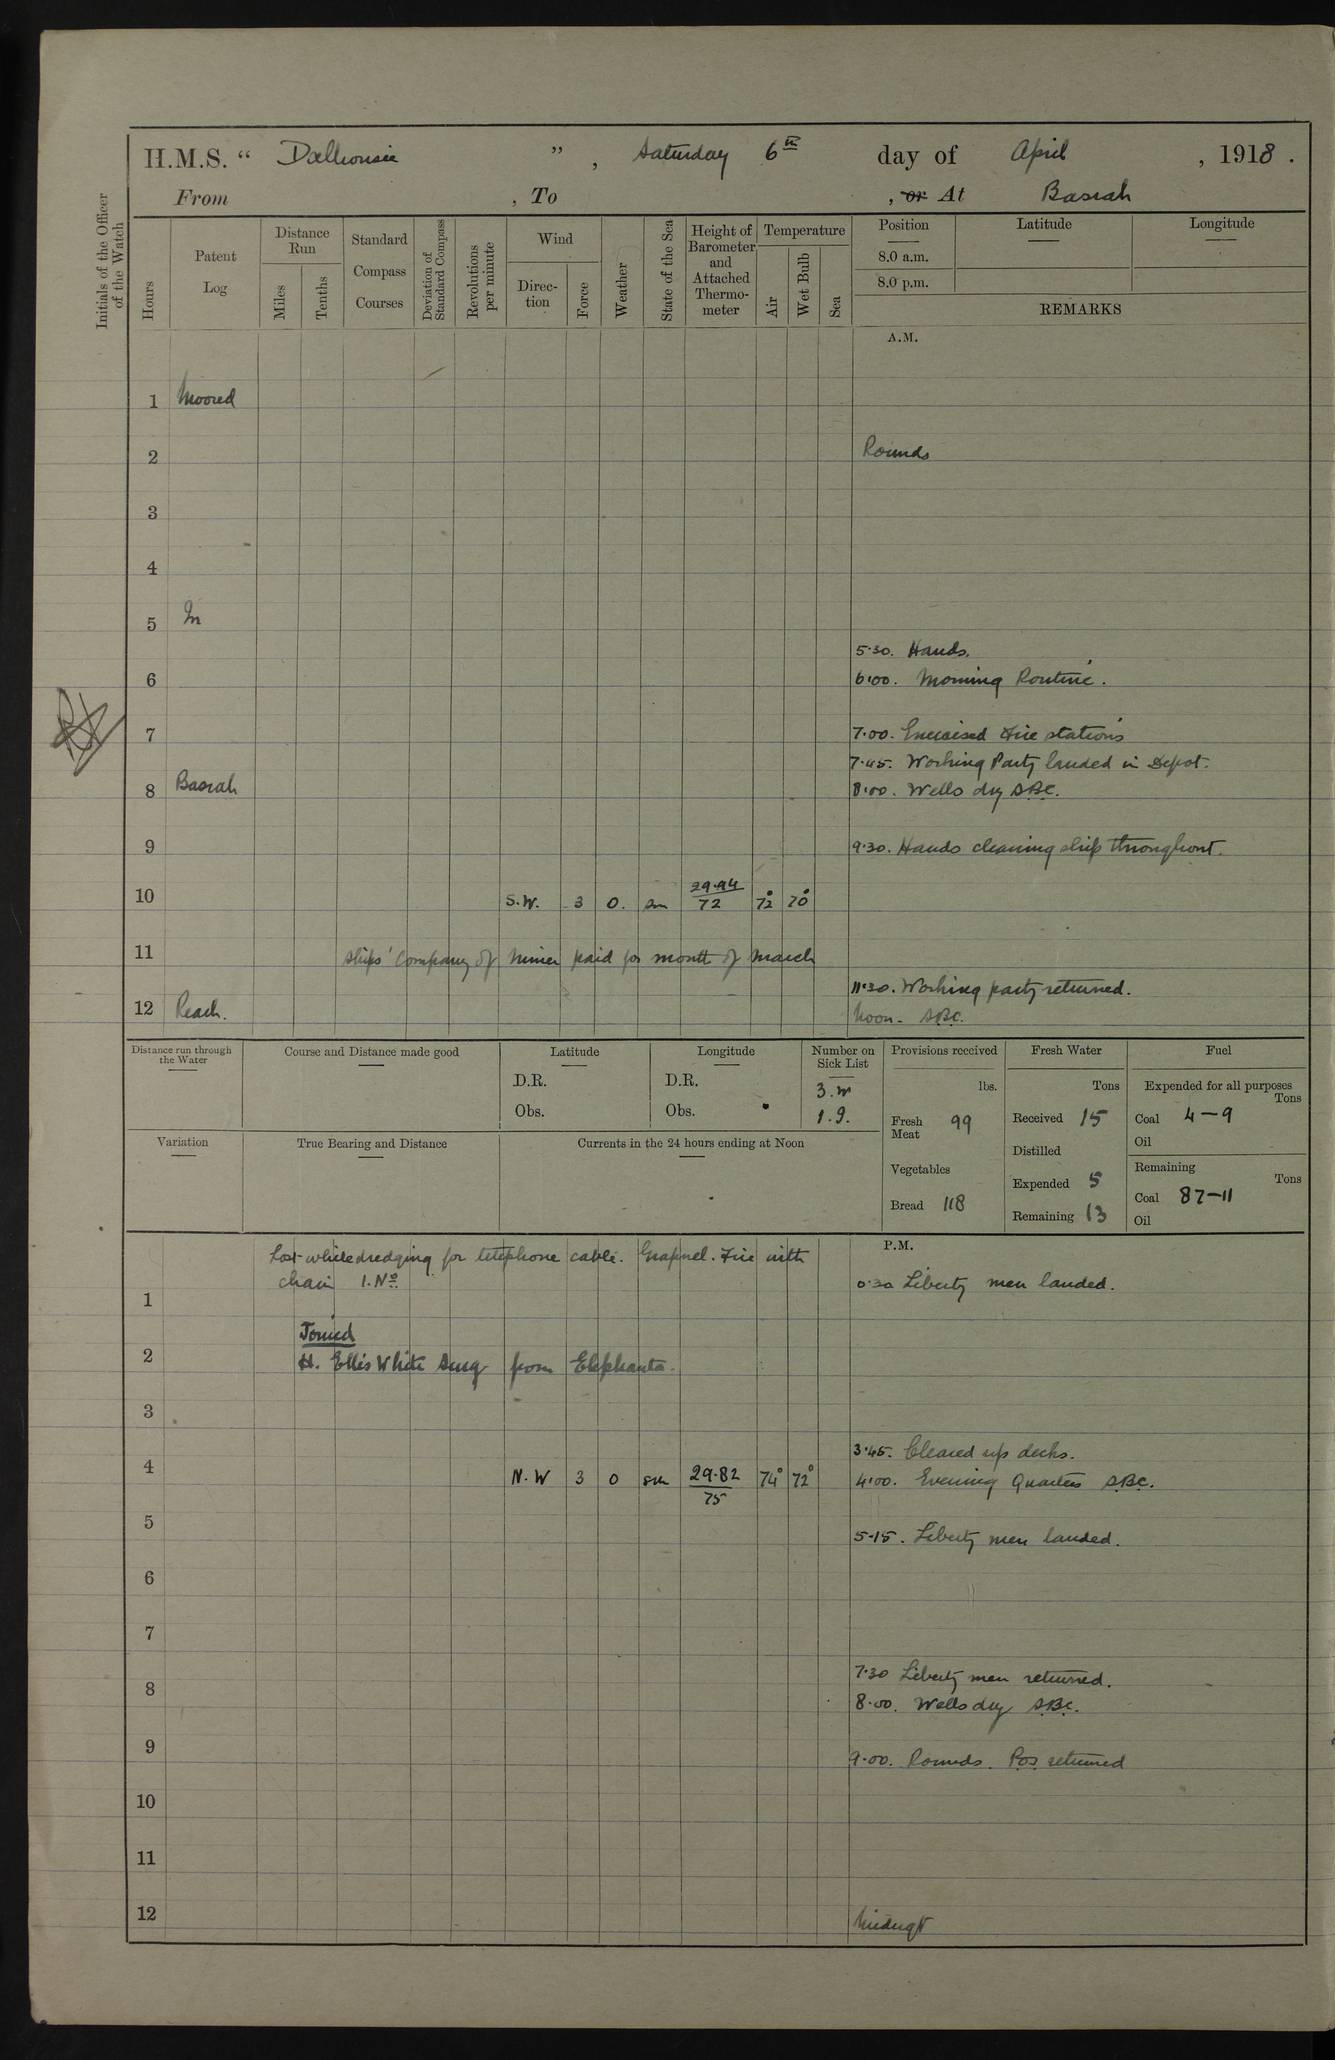 H.M.S. " Dalhousie " , Saturday 6th day of April , 1918 .
From , To , or At Basrah
Initials of the Officer of the Watch
Hours
Patent Log
Distance Run
Miles
Tenths
Standard Compass Courses
Deviation of Standard Compass
Revolutions per minute
Wind
Direc-tion
Force
Weather
State of the Sea
Height of Barometer and Attached Thermo-meter
Temperature
Air
Wet Bulb
Sea
Position
8.0 a.m.
8.0 p.m.
Latitude
Longitude
REMARKS
A.M.
1 Moored
2 Rounds
3
4
5 In
5.30. Hands.
6 6.00. Morning Routine.
7 7.00. Exercised Fire stations
7.45. Working Party landed in Depot.
8 Basrah 8.00. Wells dry S.B.C.
9 9.30. Hands cleaning ship throughout.
10 S.W. 3 O. sm 29.94 72 72° 70°
11 Ships' Company of Miner paid for month of March
11.30. Working party returned.
12 Reach. Noon - S.B.C.
Distance run through the Water
Course and Distance made good
Latitude
D.R.
Obs.
Longitude
D.R.
Obs.
Number on Sick List
3.W
1.9.
Provisions received
lbs.
Fresh Meat 99
Vegetables
Bread 118
Fresh Water
Tons
Received 15
Distilled
Expended 5
Remaining 13
Fuel
Expended for all purposes
Tons
Coal 4-9
Oil
Remaining
Tons
Coal 87-11
Oil
Variation
True Bearing and Distance
Currents in the 24 hours ending at Noon
P.M.
Lost while dredging for telephone cable. Grapnel. Fire with
chain 1. No.
1 0.30 Liberty men landed.
Joined
2 H. Ellis White Surg from Elephanta.
3
3.45. Cleared up decks.
4 N.W 3 O sm 29.82 75 74° 72° 4.00. Evening Quarters S.B.C.
5 5.15. Liberty men landed.
6
7
7.30 Liberty men returned.
8 8.00. Wells dry S.B.C.
9 9.00. Rounds. P.O.s. returned
10
11
12 Midngt